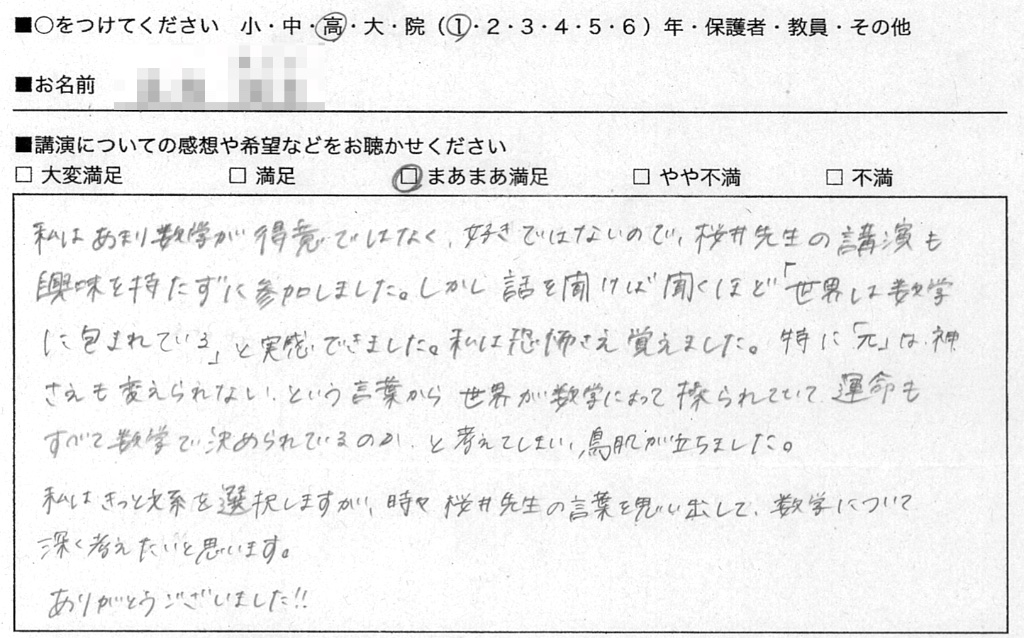 ■○をつけてください 小・中・高・大・院（1・2・3・4・5・6）年・保護者・教員・その他
■お名前
■講演についての感想や希望などをお聴かせください
□ 大変満足 □ 満足 □ まあまあ満足 □ やや不満 □ 不満
私はあまり数学が得意ではなく、好きではないので、桜井先生の講演も
興味を持たずに参加しました。しかし話を聞けば聞くほど「世界は数学
に包まれている」と実感できました。私は恐怖さえ覚えました。特に「元」は神
さえも変えられない、という言葉から世界が数学によって操られていて、運命も
すべて数学で決められているのか、と考えてしまい、鳥肌が立ちました。
私はきっと文系を選択しますが、時々桜井先生の言葉を思い出して、数学について
深く考えたいと思います。
ありがとうございました!!